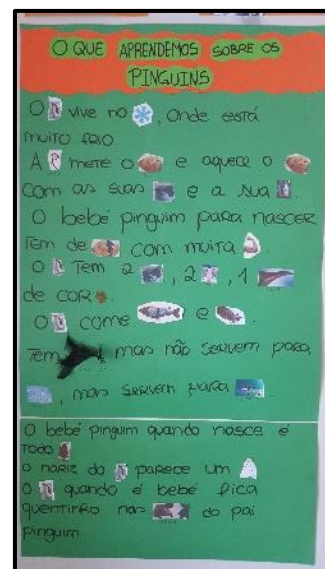 O QUE APRENDEMOS SOBRE OS
PINGUINS
O vive no , onde está
muito frio
A mete o e aquece o
com as suas e a sua .
O bebé pinguim para nascer
Tem de com muita .
O Tem 2 , 2 , 1
de cor .
O come e .
Tem mas não servem para
, mas servem para .
O bebé pinguim quando nasce é
todo
O nariz do parece um
O quando é bebé fica
quentinho nas do pai
pinguim